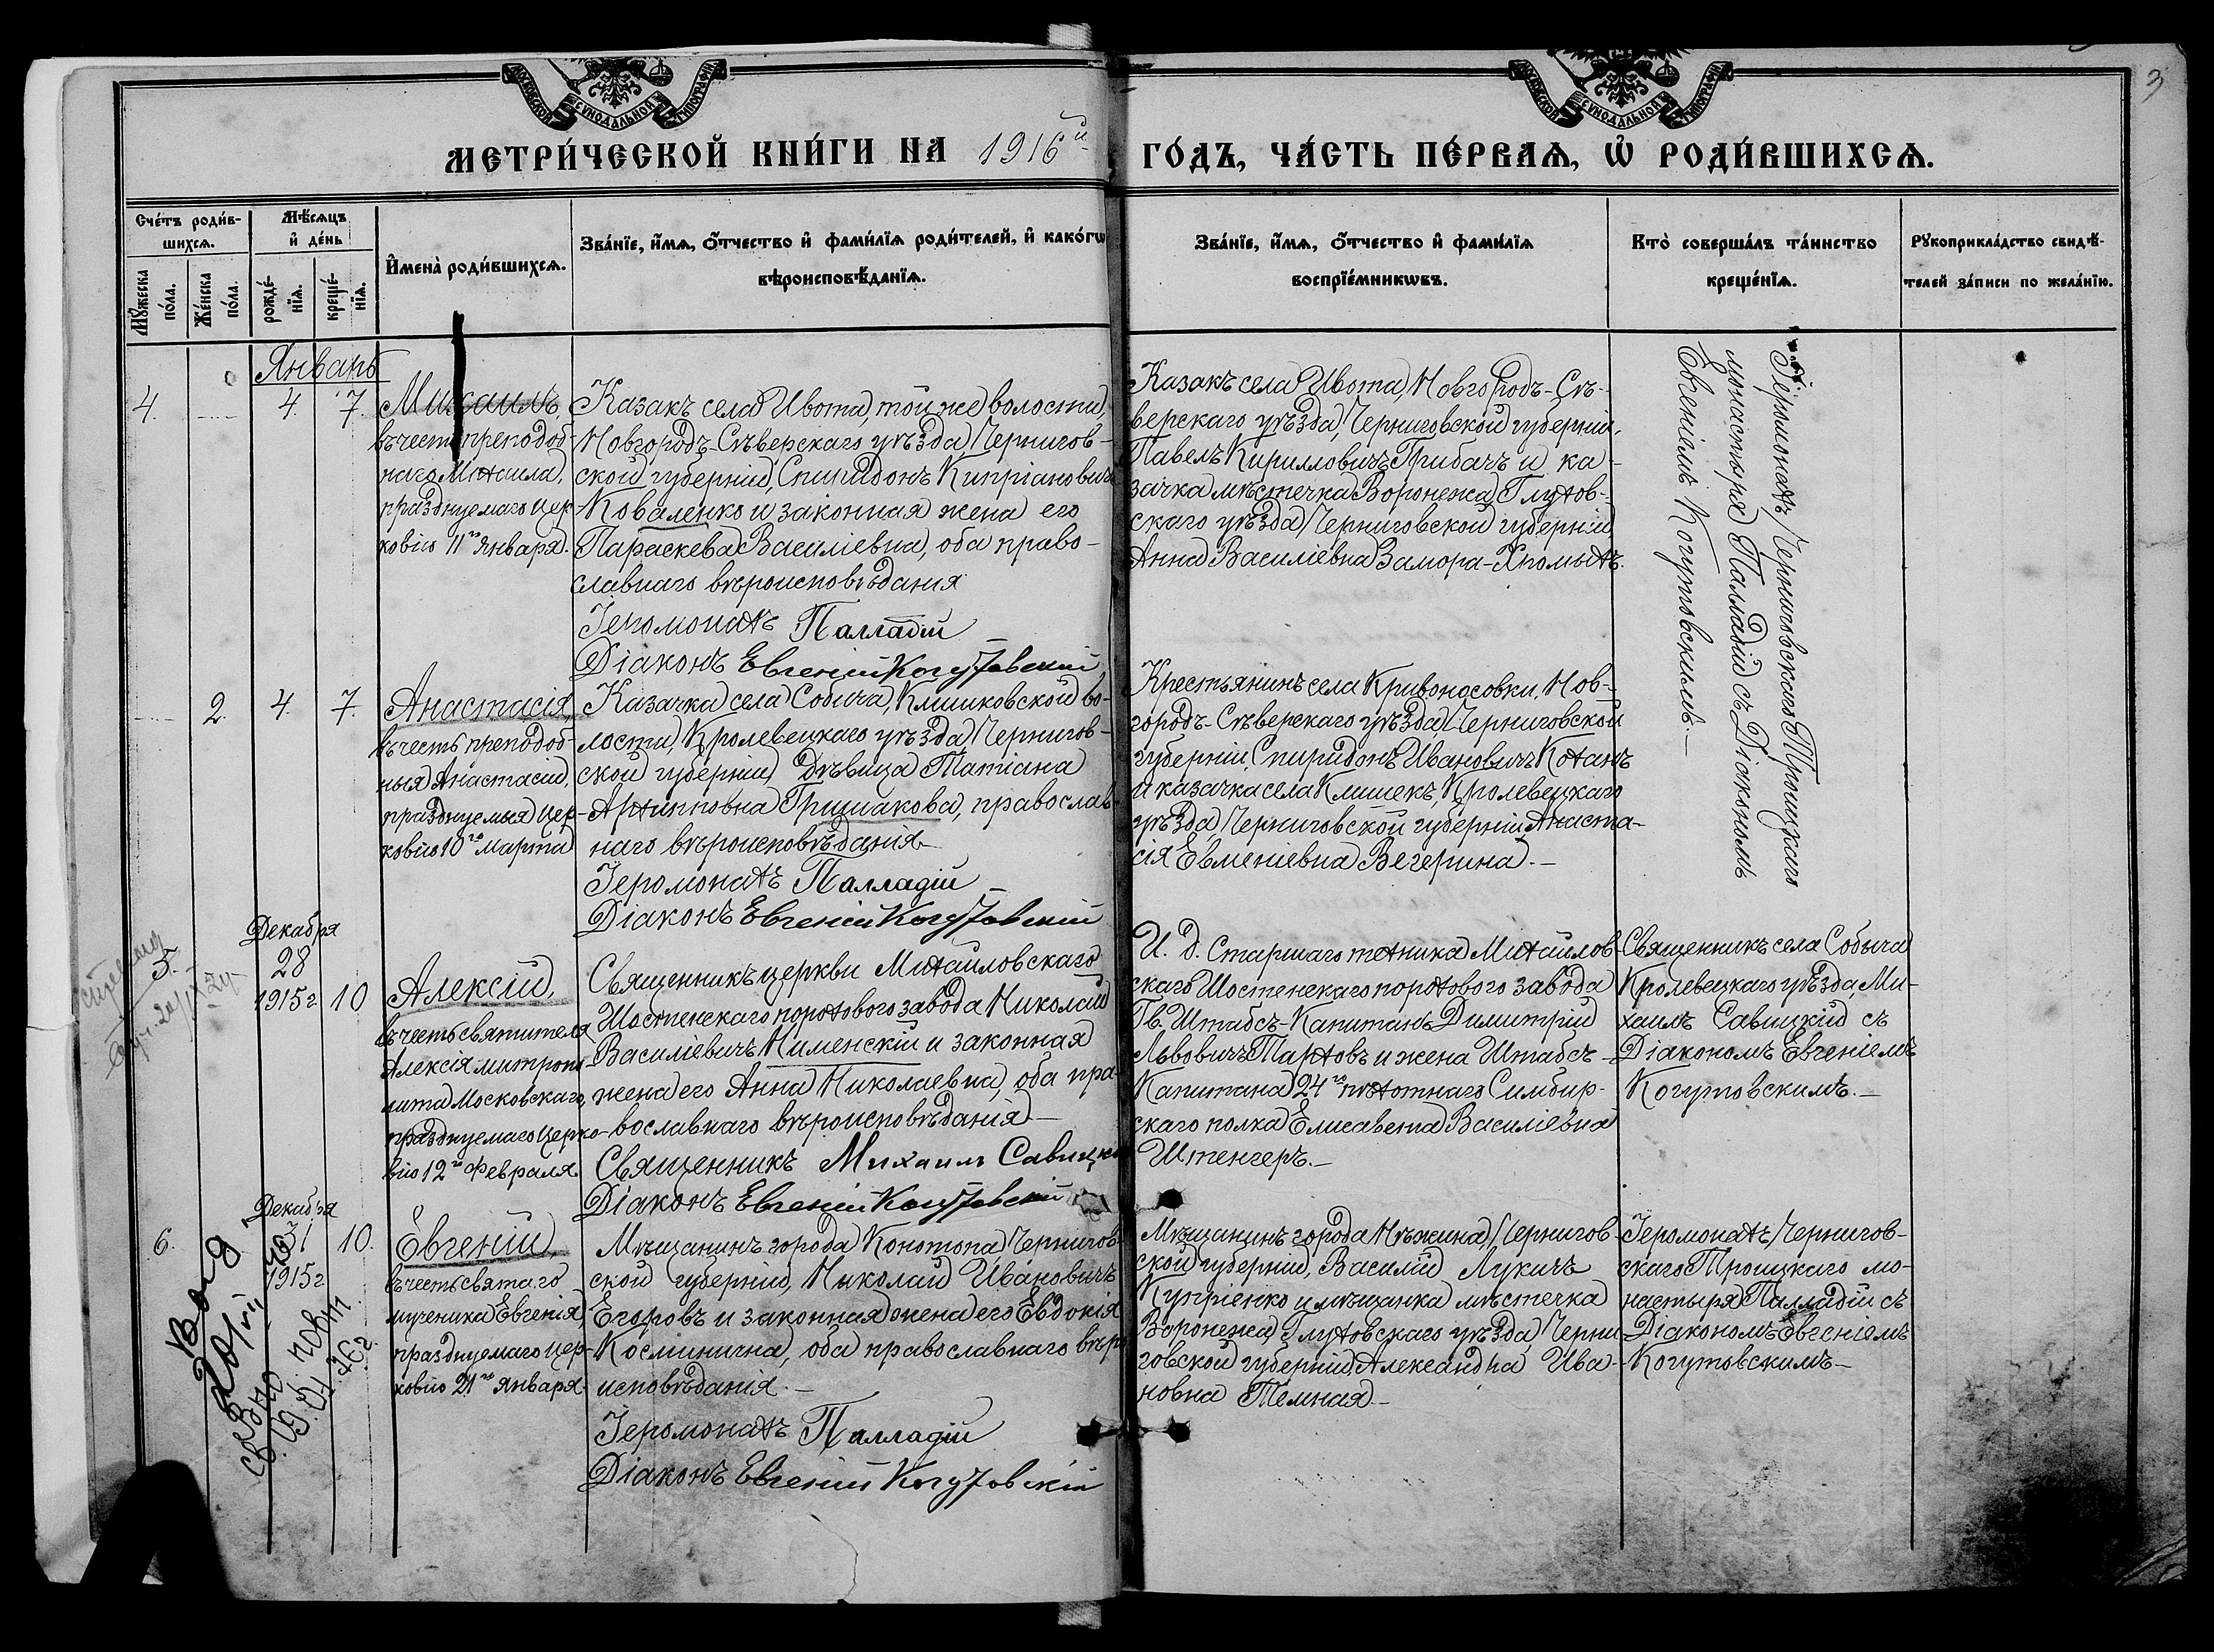 3
МОСКОВСКОЙ СѴНОДАЛЬНОЙ ТИПОГРАФІИ
МОСКОВСКОЙ СѴНОДАЛЬНОЙ ТИПОГРАФІИ
МЕТРИ́ЧЕСКОЙ КНИ́ГИ НА 1916й ГО́ДЪ, ЧА́СТЬ ПЕ́РВАѦ, Ѡ҆ РОДИ́ВШИХСѦ.
Сче́тъ роди́в-
шихсѧ.
Мꙋ́жеска по́ла.
Же́нска по́ла.
Мѣ́сѧцъ
и҆ де́нь
рожде́-
нїѧ.
креще́-
нїѧ.
И҆мена̀ роди́вшихсѧ.
Зва́нїе, и҆́мѧ, ѻ҆́тчество и҆ фами́лїѧ роди́телей, и҆ како́гѡ
вѣроисповѣ́данїѧ.
Зва́нїе, и҆́мѧ, ѻ҆́тчество и҆ фами́лїѧ
воспрїе́мникѡвъ.
Кто̀ соверша́лъ та́инство
креще́нїѧ.
Рꙋкоприкла́дство свидѣ́-
телей за́писи по жела́нїю.
Январь
4. 4. 7.
Михаилъ,
въ честь преподоб-
наго Михаила,
празднуемаго Цер-
ковію 11го Января.
Казакъ села Ивота, той же волости,
Новгородъ-Сѣверскаго уѣзда, Чернигов-
ской губерніи, Спиридонъ Кипріановичъ
Коваленко и законная жена его
Параскева Василіевна, оба право-
славнаго вѣроисповѣданія
Іеромонахъ Палладій
Діаконъ Евгеній Когутовскій
Казакъ села Ивота, Новгородъ-Сѣ-
верскаго уѣзда, Черниговской губерніи,
Павелъ Кирилловичъ Грибачъ и ка-
зачка мѣстечка Воронежа, Глухов-
скаго уѣзда, Черниговской губерніи
Анна Василіевна Замора-Хромыхъ.
Іеромонахъ Черниговскаго Троицкаго
монастыря Палладій съ Діакономъ
Евгеніемъ Когутовскимъ.—
2. 4. 7.
Анастасія,
въ честь преподоб-
ныя Анастасіи,
празднуемыя Цер-
ковію 10го Марта
Казачка села Собича, Клишковской во-
лости, Кролевецкаго уѣзда, Чернигов-
ской губерніи, дѣвица Татіана
Архипповна Гришакова, православ-
наго вѣроисповѣданія
Іеромонахъ Палладій
Діаконъ Евгеній Когутовскій
Крестьянинъ села Кривоносовки, Нов-
городъ-Сѣверскаго уѣзда, Черниговской
губерніи, Спиридонъ Ивановичъ Коханъ
и казачка села Клишекъ, Кролевецкаго
уѣзда, Черниговской губерніи, Анаста-
сія Евменіевна Вегерина.—
5.
Декабря
28
1915 г. 10
Алексій,
въ честь святителя
Алексія митропо-
лита Московскаго,
празднуемаго Церко-
вію 12го Февраля.
Священникъ церкви Михайловскаго
Шостенскаго порохового завода Николай
Василіевичъ Нименскій и законная
жена его Анна Николаевна, оба пра-
вославнаго вѣроисповѣданія—
Священникъ Михаилъ Савицкій
Діаконъ Евгеній Когутовскій
И. д. Старшаго техника Михайлов-
скаго Шостенскаго порохового завода
Гв. Штабсъ-Капитанъ Димитрій
Львовичъ Тартовъ и жена Штабсъ-
Капитана 24го пѣхотнаго Симбир-
скаго полка Елисавета Василіевна
Штенгеръ.—
Священникъ села Собыча
Кролевецкаго уѣзда, Ми-
хаилъ Савицкій съ
Діакономъ Евгеніемъ
Когутовскимъ.—
6.
Декабря
31
1915 г. 10.
Евгеній,
въ честь святаго
мученика Евгенія,
празднуемаго Цер-
ковію 21го Января.
Мѣщанинъ города Конотопа, Чернигов-
ской губерніи, Николай Ивановичъ
Егоровъ и законная жена его Евдокія
Косминична, оба православнаго вѣро-
исповѣданія.—
Іеромонахъ Палладій
Діаконъ Евгеній Когутовскій
Мѣщанинъ города Нѣжина, Чернигов-
ской губерніи, Василій Лукичъ
Купріенко и мѣщанка мѣстечка
Воронежа, Глуховскаго уѣзда, Черни-
говской губерніи, Александра Ива-
новна Темная—
Іеромонахъ Чернигов-
скаго Троицкаго мо-
настыря Палладій съ
Діакономъ Евгеніемъ
Когутовскимъ—